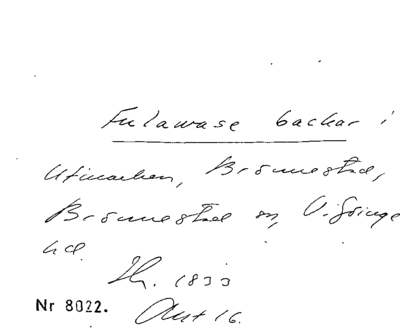 Fulawase backar i
Utmarken, Brönnestad,
Brönnestad sn, V. Göinge
hd.
Th. 1833
Nr 8022. Akt 16.